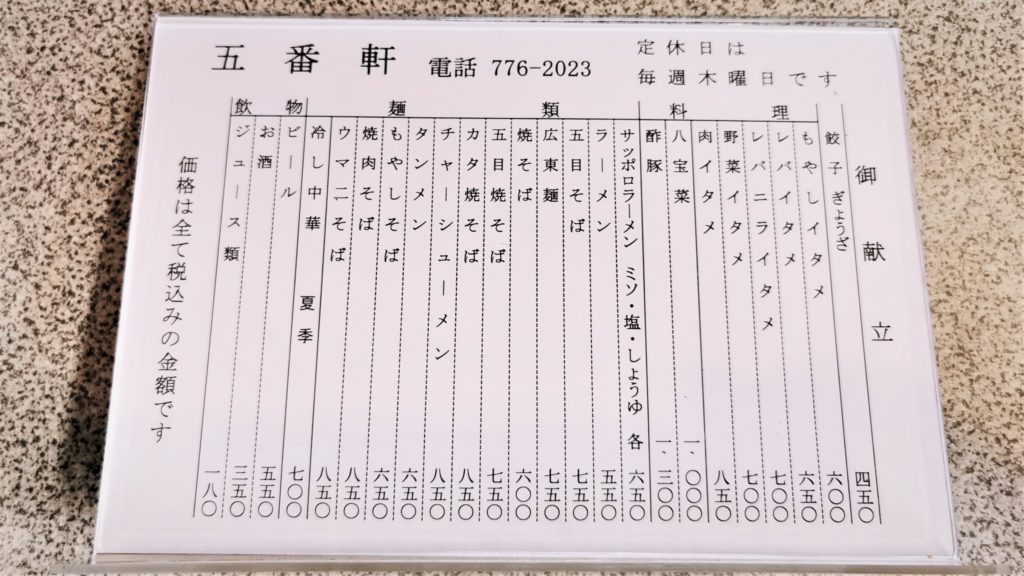 五番軒 電話 776-2023
定休日は
毎週木曜日です。
御献立
餃子 ぎょうざ 四五〇
料理
もやしイタメ 六〇〇
レバイタメ 六五〇
レバニライタメ 七〇〇
野菜イタメ 七〇〇
肉イタメ 八五〇
八宝菜 一、〇〇〇
酢豚 一、三〇〇
麺類
サッポロラーメン ミソ・塩・しょうゆ 各 六五〇
ラーメン 五五〇
五目そば 七五〇
広東麺 七五〇
焼そば 六〇〇
五目焼そば 七五〇
カタ焼そば 八五〇
チャーシューメン 八五〇
タンメン 六五〇
もやしそば 六五〇
焼肉そば 八五〇
ウマ二そば 八五〇
冷し中華 夏季 七〇〇
飲物
ビール 五五〇
お酒 三五〇
ジュース類 一八〇
価格は全て税込みの金額です